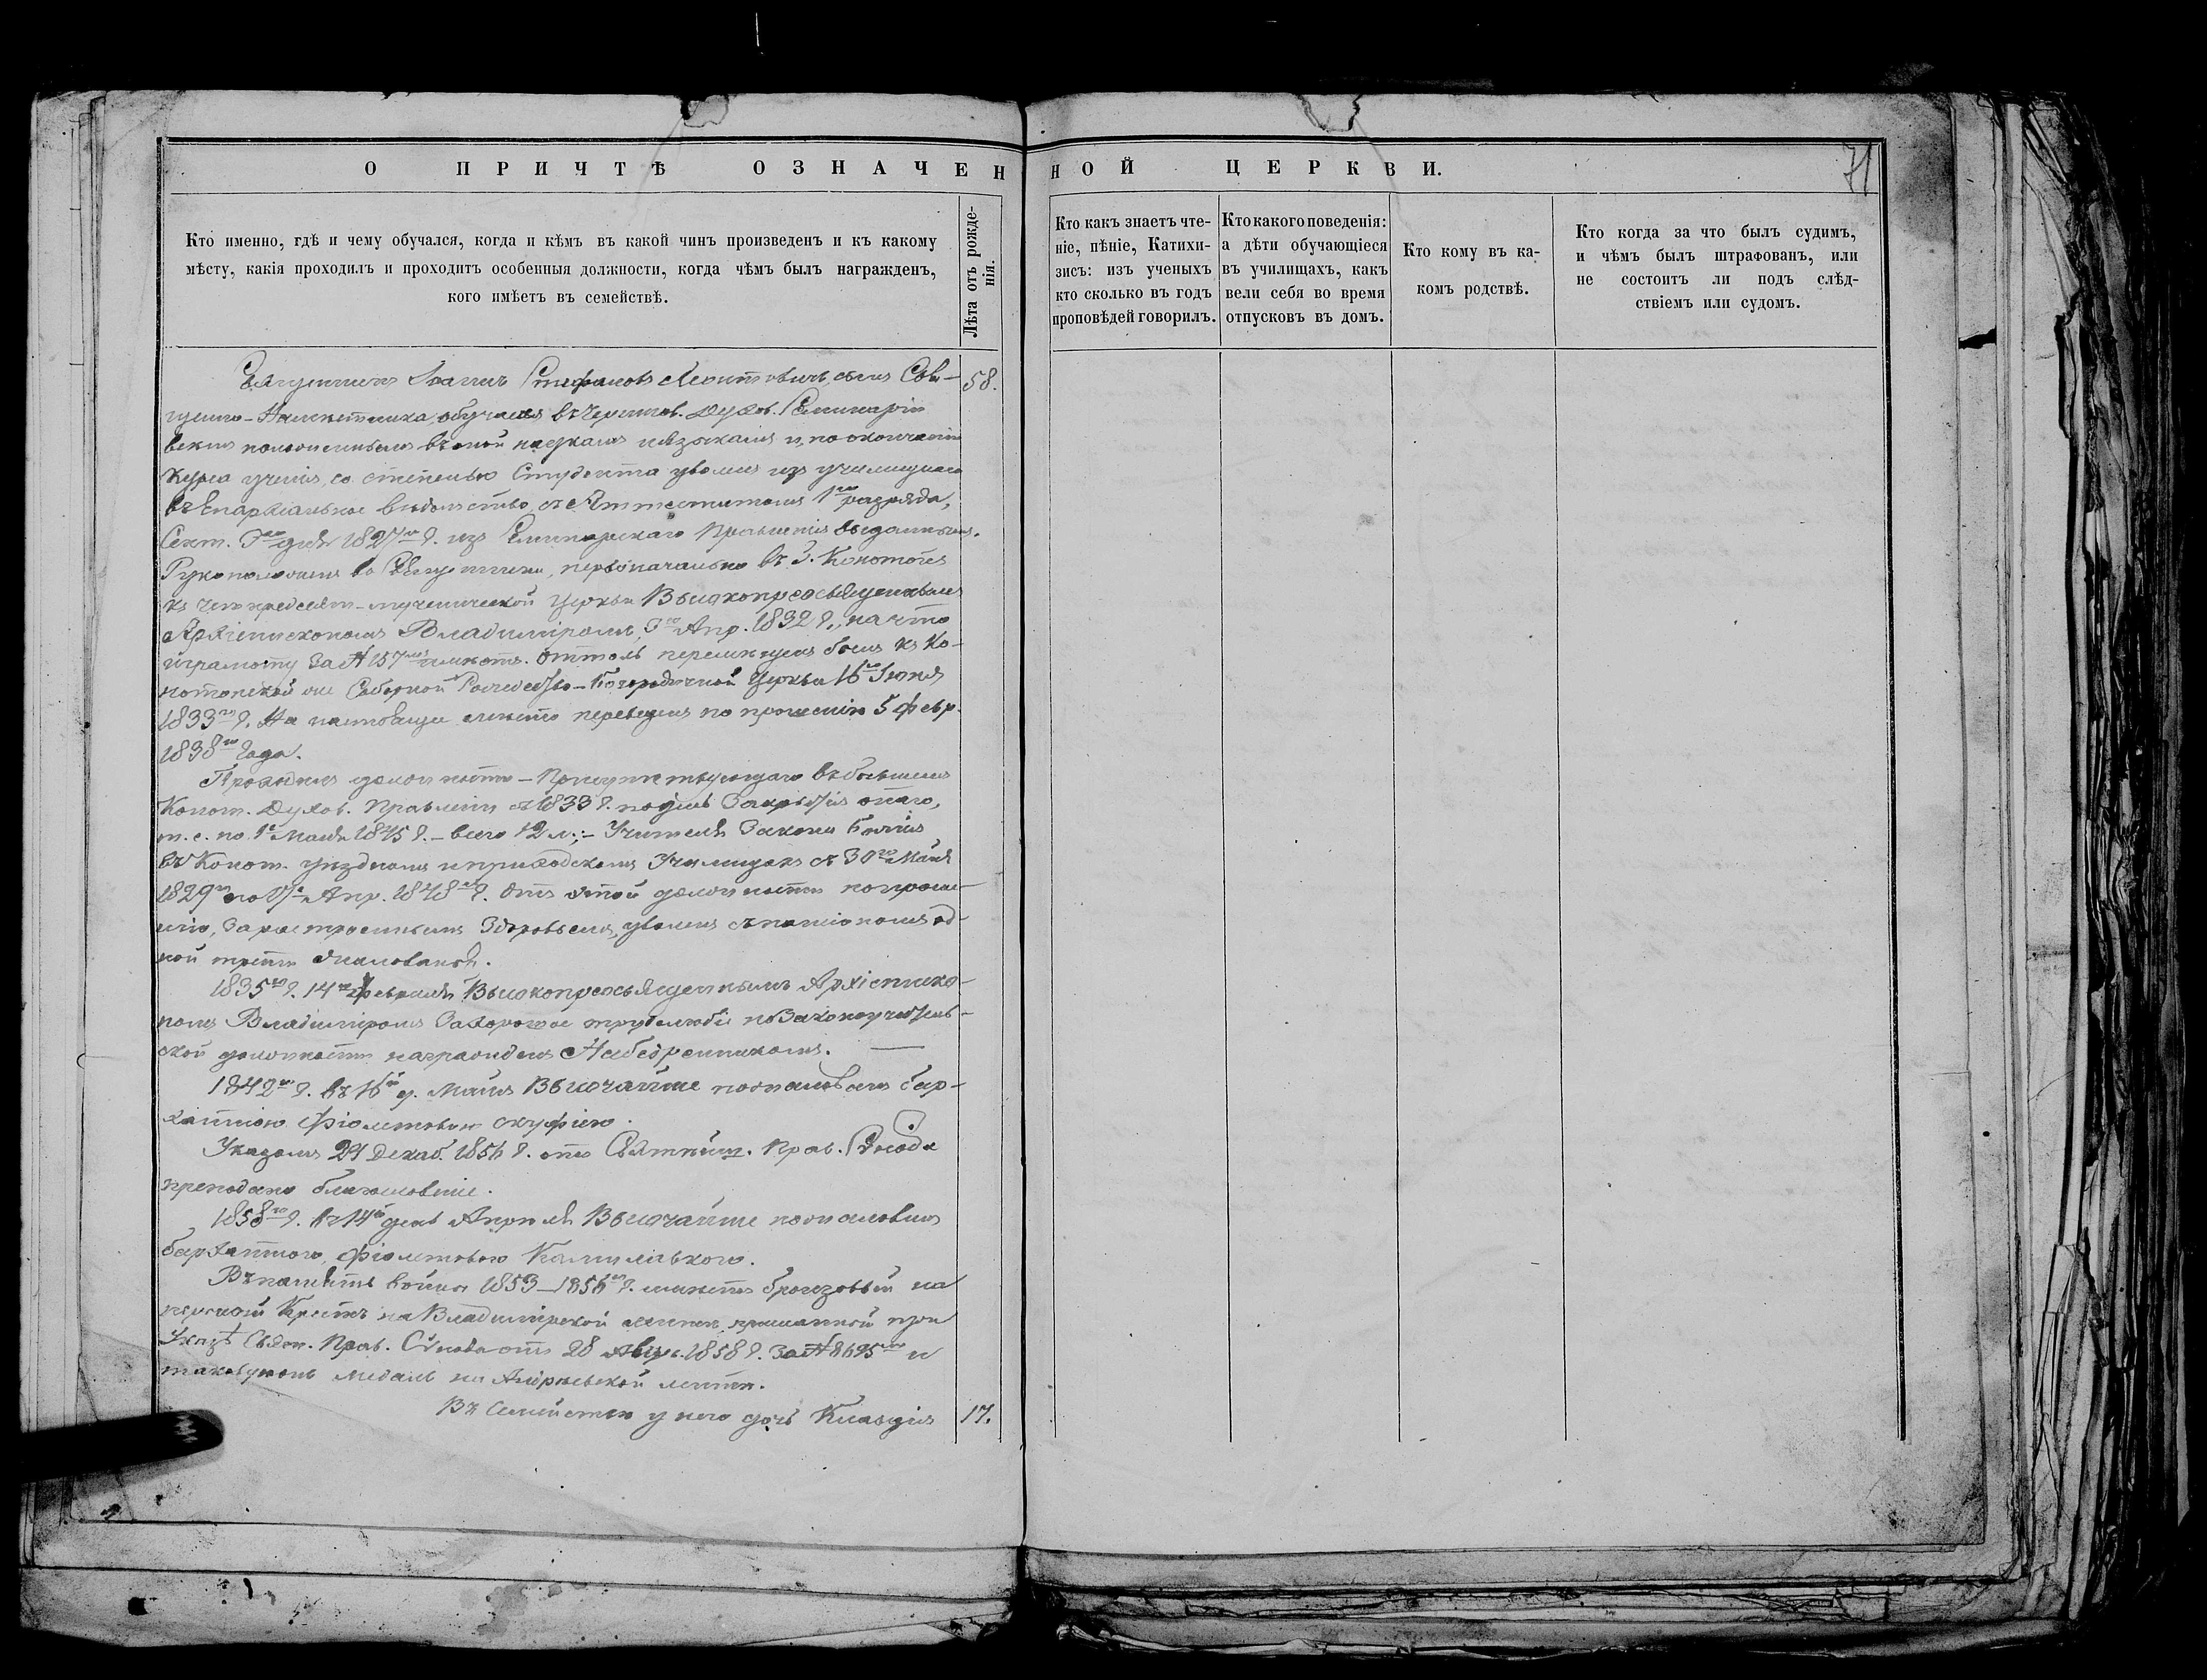 О ПРИЧТѢ ОЗНАЧЕННОЙ ЦЕРКВИ.
71
Кто именно, гдѣ и чему обучался, когда и кѣмъ въ какой чинъ произведенъ и къ какому
мѣсту, какія проходилъ и проходитъ особенныя должности, когда чѣмъ былъ награжденъ,
кого имѣетъ въ семействѣ.
Лѣта отъ рожде-
нія.
Кто какъ знаетъ чте-
ніе, пѣніе, Катихи-
зисъ: изъ ученыхъ
кто сколько въ годъ
проповѣдей говорилъ.
Кто какого поведенія:
а дѣти обучающіеся
въ училищахъ, какъ
вели себя во время
отпусковъ въ домъ.
Кто кому въ ка-
комъ родствѣ.
Кто когда за что былъ судимъ,
и чѣмъ былъ штрафованъ, или
не состоитъ ли подъ слѣд-
ствіемъ или судомъ.
Священникъ Іоаннъ Стефановъ Леонтовичъ, сынъ Свя- 58.
щенно-Намѣстника, обучался въ Чернигов. Духов. Семинаріи
всѣмъ положеннымъ въ оной наукамъ и языкамъ и, по окончаніи
курса ученія, со степенью Студента уволенъ изъ училищнаго
въ Епархіальное вѣдомство, съ Аттестатомъ 1го разряда,
Сент. дня 1827го г. изъ Семинарскаго Правленія выданнымъ.
Рукоположенъ во Священника, первоначально въ г. Конотопъ
къ мученической церкви Высокопреосвященнымъ
Архіепископомъ Владиміромъ, Апр. 1832 г., на что
и грамоту за № 157мъ имѣетъ. Оттоль перемѣщенъ былъ къ Ко-
нотопской же Соборной Рождество-Богородичной церкви 16го Іюня
1833го г. На настоящее мѣсто переведенъ по прошенію 5 Февр.
1838го года.
Проходилъ должность – Присутствующаго въ бывшемъ
Конот. Духов. Правленіи съ 1833 г. по день закрытія онаго,
т. е. по 1е Мая 1845 г. – всего 12 л.; – Учителя Закона Божія
въ Конот. уѣздномъ и приходскомъ Училищахъ съ 30го Мая
1829го по Апр. 1848го г. Отъ этой должности по проше-
нію, за разстроеннымъ здоровьемъ, уволенъ съ пансіономъ од-
ной трети жалованья.
1835го г. 14го Февраля Высокопреосвященнымъ Архіеписко-
помъ Владиміромъ за хорошое трудолюбіе по Законоучитель-
ской должности награжденъ Набедренникомъ.
1842го г. въ 16й д. Маія Высочайше пожалованъ бар-
хатною фіолетовою скуфіею.
Указомъ 24 Декаб. 1856 г. отъ Святѣйш. Прав. Сѵнода
преподано благословеніе.
1858го г. въ 14й день Апрѣля Высочайше пожалованъ
бархатною фіолетовою Камилавкою.
Въ память войны 1853–1856го г. имѣетъ бронзовый на
персный Крестъ на Владимірской лентѣ, присланной при
Указѣ Свят. Прав. Сѵнода отъ 28 Авгус. 1858 г. за № 8695мъ и
таковую жъ медаль на Андреевской лентѣ.
Въ семействѣ у него дочь Клавдія 17.